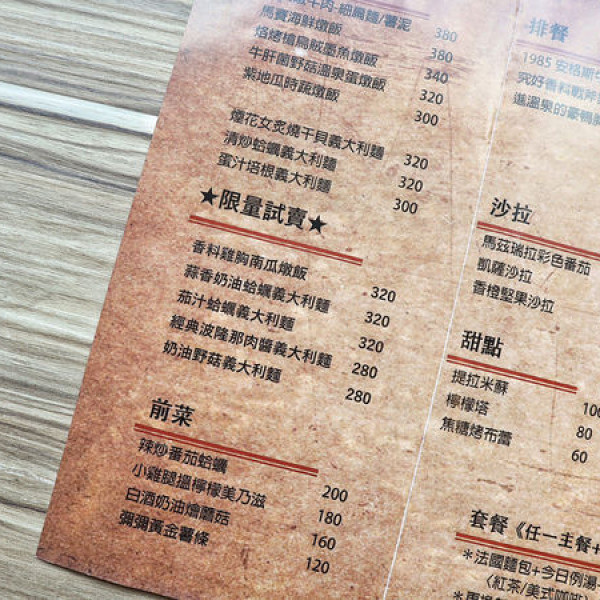 牛肉-細扁麵/薯泥 380
馬賽海鮮燉飯 380
焰烤檜扁賊墨魚燉飯 340
牛肝菌野菇溫泉蛋燉飯 320
紫地瓜時蔬燉飯 300
煙花女炙燒干貝義大利麵 320
清炒蛤蠣義大利麵 320
蛋汁培根義大利麵 300
★限量試賣★
香料雞胸南瓜燉飯 320
蒜香奶油蛤蠣義大利麵 320
茄汁蛤蠣義大利麵 320
經典波隆那肉醬義大利麵 280
奶油野菇義大利麵 280
前菜
辣炒番茄蛤蠣 200
小雞腿搵檸檬美乃滋 180
白酒奶油燴蘑菇 160
彌彌黃金薯條 120
排餐
1985 安格斯
究好香料戰斧
進溫泉的豪鴨
沙拉
馬茲瑞拉彩色番茄
凱薩沙拉
香橙堅果沙拉
甜點
提拉米蘇 100
檸檬塔 80
焦糖烤布蕾 60
套餐《任一主餐+
＊法國麵包+今日例湯
〈紅茶/美式咖啡